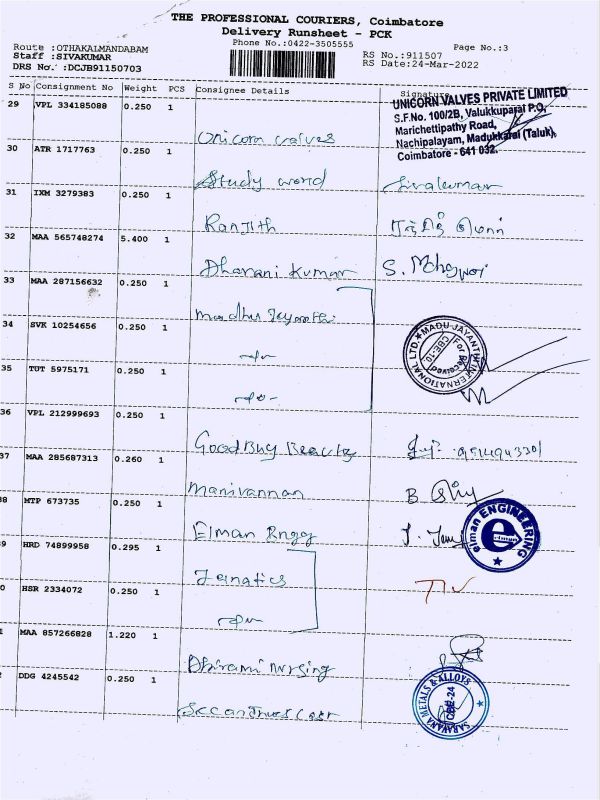 THE PROFESSIONAL COURIERS, Coimbatore
Delivery Runsheet - PCK
Phone No.:0422-3505555
Page No.:3
Route :OTHAKALMANDABAM
Staff :SIVAKUMAR
DRS No. :DCJB91150703
RS No.:911507
RS Date:24-Mar-2022
S No Consignment No Weight PCS Consignee Details Signature
29 VPL 334185088 0.250 1
Unicorn valves
UNICORN VALVES PRIVATE LIMITED
S.F.No. 100/2B, Valukkuparai P.O,
Marichettipathy Road,
Nachipalayam, Madukkarai (Taluk),
Coimbatore - 641 032.
30 ATR 1717763 0.250 1
Study world Sivakumar
31 IXM 3279383 0.250 1
Ranjith
32 MAA 565748274 5.400 1
Dharani Kumar
33 MAA 287156632 0.250 1
34 SVK 10254656 0.250 1
MADU JAYANTHI INTERNATIONAL LTD.
For
CBE-10
Received
35 TUT 5975171 0.250 1
36 VPL 212999693 0.250 1
Good Buy Beauty
37 MAA 285687313 0.260 1
Manivannan
8 MTP 673735 0.250 1
Elman Engg
elman ENGINEERING
e
elman
9 HRD 74899958 0.295 1
0 HSR 2334072 0.250 1
1 MAA 857266828 1.220 1
nursing
2 DDG 4245542 0.250 1
SARAVANA METALS & ALLOYS
CBE-24